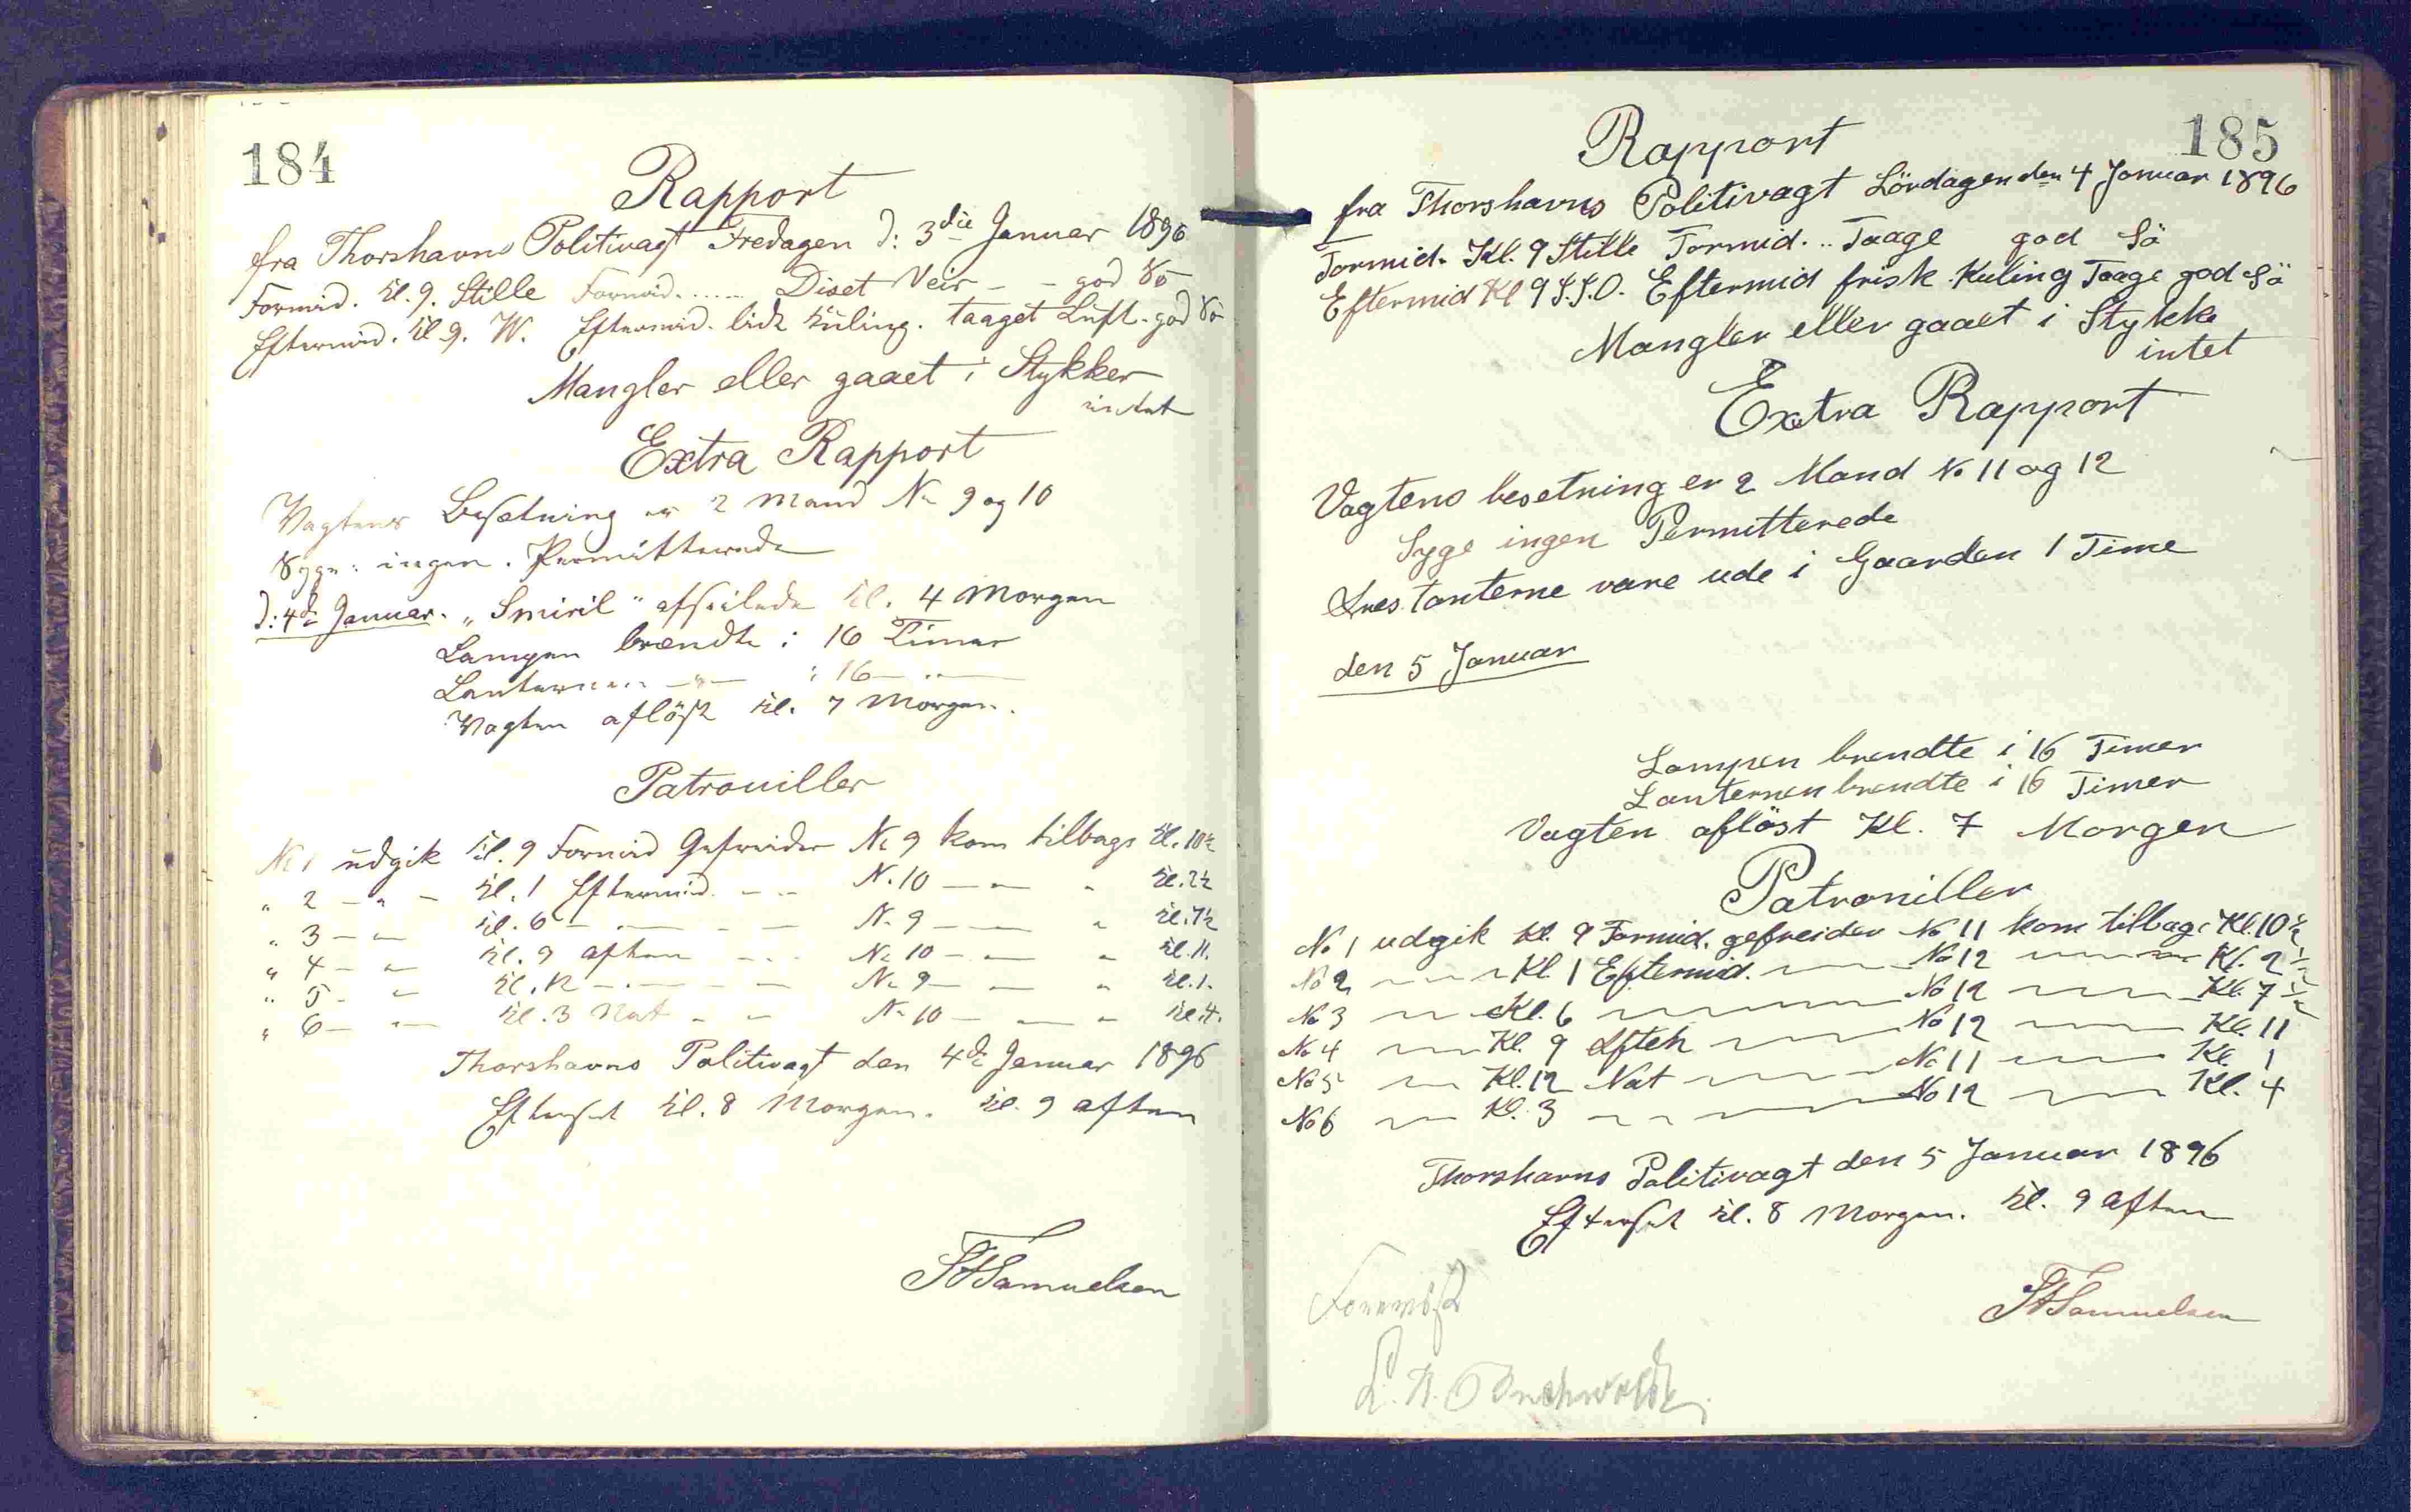 184
Rapport
fra Thorshavns Politivagt Fredagen d: 3die Januar 1896
Formid. Kl. 9. Stille Formid. ..... Diset Veir - - god Sö
Eftermid. Kl 9. W. Eftermid. lidt Kuling. taaget Luft. god Sö
Mangler eller gaaet i Stykker
intet
Extra Rapport
Vagtens Besætning er 2 Mand No 9 og 10
Syge: ingen. Permitterede
d: 4de Januar. „Smiril" afseilede Kl. 4 Morgen
Lampen brændte i 16 Timer
Lanternen -"- i 16 - " -
Vagten aflöst Kl. 7 Morgen.
Patrouiller
No 1 udgik Kl. 9 Formid Gefreider No 9 kom tilbage Kl. 10½
" 2 - " - Kl. 1 Eftermid. - - No. 10 - " - " Kl. 2½
" 3 - " - Kl. 6 - " - - - No. 9 - " - " Kl. 7½
" 4 - " - Kl. 9 aften - - - No 10 - " - " Kl. 11.
" 5 - " - Kl. 12 - " - - - No 9 - " - " Kl. 1.
" 6 - " - Kl. 3 Nat - - No 10 - " - " Kl. 4.
Thorshavns Politivagt den 4de Januar 1896
Efterset Kl. 8 Morgen. Kl. 9 aften
Samuelsen
185
Rapport
fra Thorshavns Politivagt Lördagen den 4 Januar 1896
Formid. Kl. 9 Stille Formid. .. Taage god Sö
Eftermid Kl 9 S.S.O. Eftermid frisk Kuling Taage god Sö
Mangler eller gaaet i Stykke
intet
Extra Rapport
Vagtens besetning er 2 Mand No 11 og 12
Syge ingen Permitterede
Arestanterne vare ude i Gaarden 1 Time
den 5 Januar
Lampen brendte i 16 Timer
Lanternen brendte i 16 Timer
Vagten aflöst Kl. 7 Morgen
Patrouiller
No 1 udgik Kl. 9 Formid. gefreider No 11 kom tilbage Kl. 10½
No 2 - " - Kl 1 Eftermid. - " - No 12 - " - Kl. 2½
No 3 - " - Kl. 6 - " - No 12 - " - Kl. 7½
No 4 - " - Kl. 9 Aften - " - No 12 - " - Kl. 11
No 5 - " - Kl. 12 Nat - " - No 11 - " - Kl. 1
No 6 - " - Kl. 3 - " - No 12 - " - Kl. 4
Thorshavns Politivagt den 5 Januar 1896
Efterset Kl. 8 Morgen. Kl. 9 aften
Samuelsen